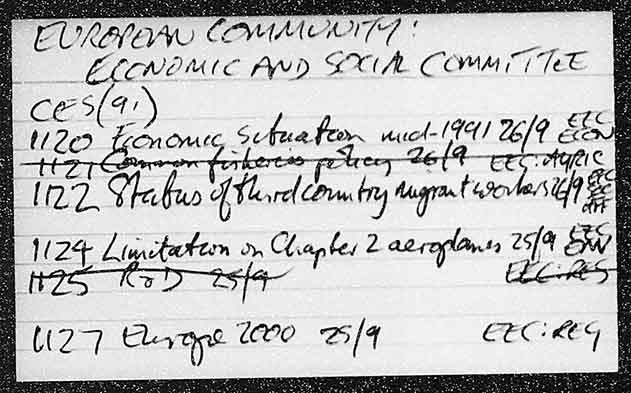 EUROPEAN COMMUNITY:
ECONOMIC AND SOCIAL COMMITTEE
CES(91)
1120 Economic situation mid-1991 26/9 EEC ECON
1121 Common fisheries policy 26/9 EEC:AGRIC
1122 Status of third country migrant workers 26/9 EEC
1124 Limitation on Chapter 2 aeroplanes 25/9 EEC
1125 R&D 25/9 EEC:RES
1127 Europe 2000 25/9 EEC:REG